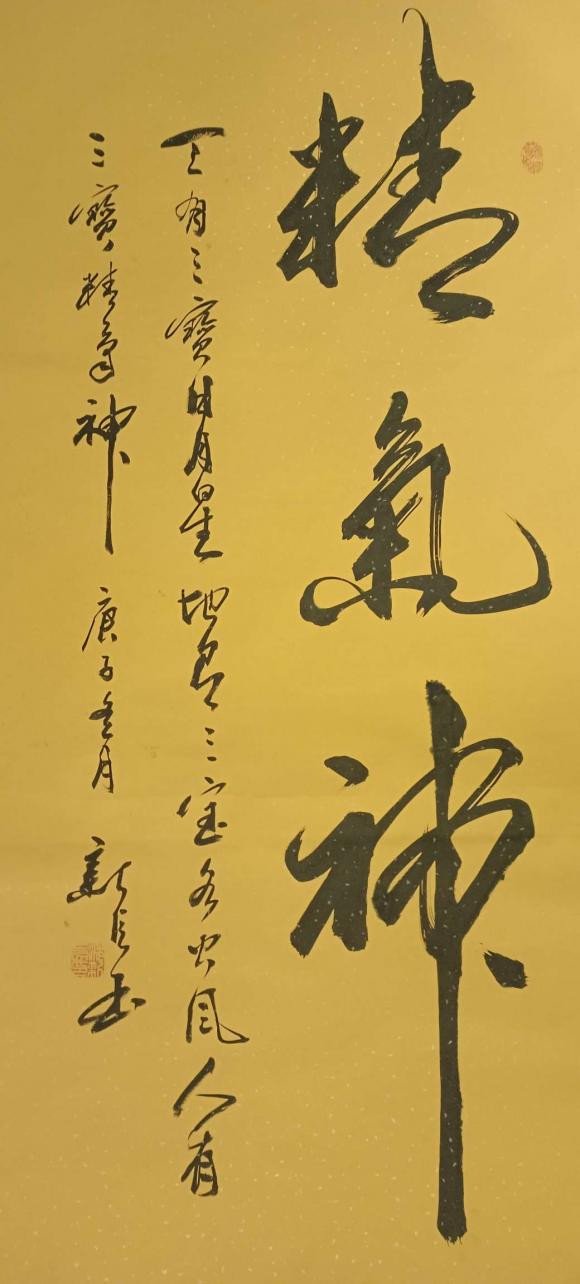 精氣神
天有三寶日月星地有三宝水火风人有
三寶精氣神 庚子冬月